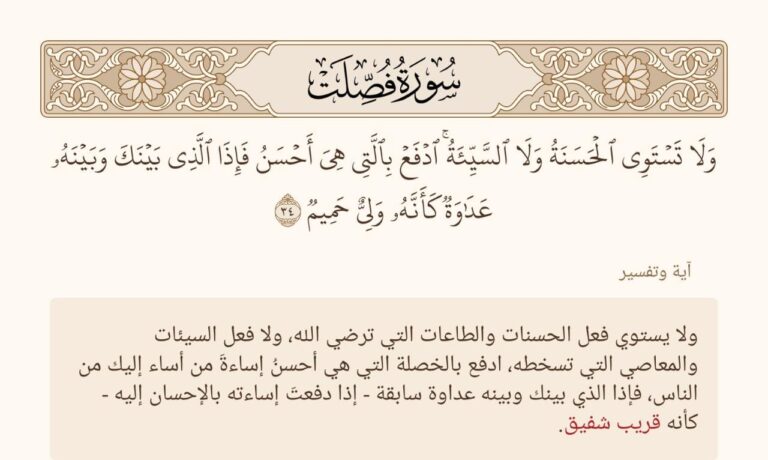 سُورَةُ فُصِّلَتْ
وَلَا تَسۡتَوِي ٱلۡحَسَنَةُ وَلَا ٱلسَّيِّئَةُۚ ٱدۡفَعۡ بِٱلَّتِي هِيَ أَحۡسَنُ فَإِذَا ٱلَّذِي بَيۡنَكَ وَبَيۡنَهُۥ
عَدَٰوَةٞ كَأَنَّهُۥ وَلِيٌّ حَمِيمٞ ٣٤
آية وتفسير
ولا يستوي فعل الحسنات والطاعات التي ترضي الله، ولا فعل السيئات
والمعاصي التي تسخطه، ادفع بالخصلة التي هي أحسنُ إساءةَ من أساء إليك من
الناس، فإذا الذي بينك وبينه عداوة سابقة - إذا دفعتَ إساءته بالإحسان إليه -
كأنه قريب شفيق.